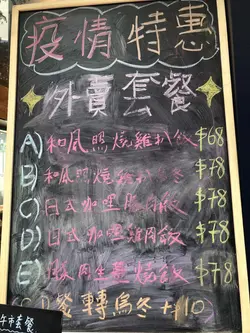 疫情特惠
外賣套餐
A) 和風照燒雞扒飯 $68
B) 和風照燒 $78
C) 日式咖哩 飯 $78
D) 日式咖哩雞肉飯 $78
E) 豚肉生薑燒飯 $78
轉烏冬 + 10
午市套餐